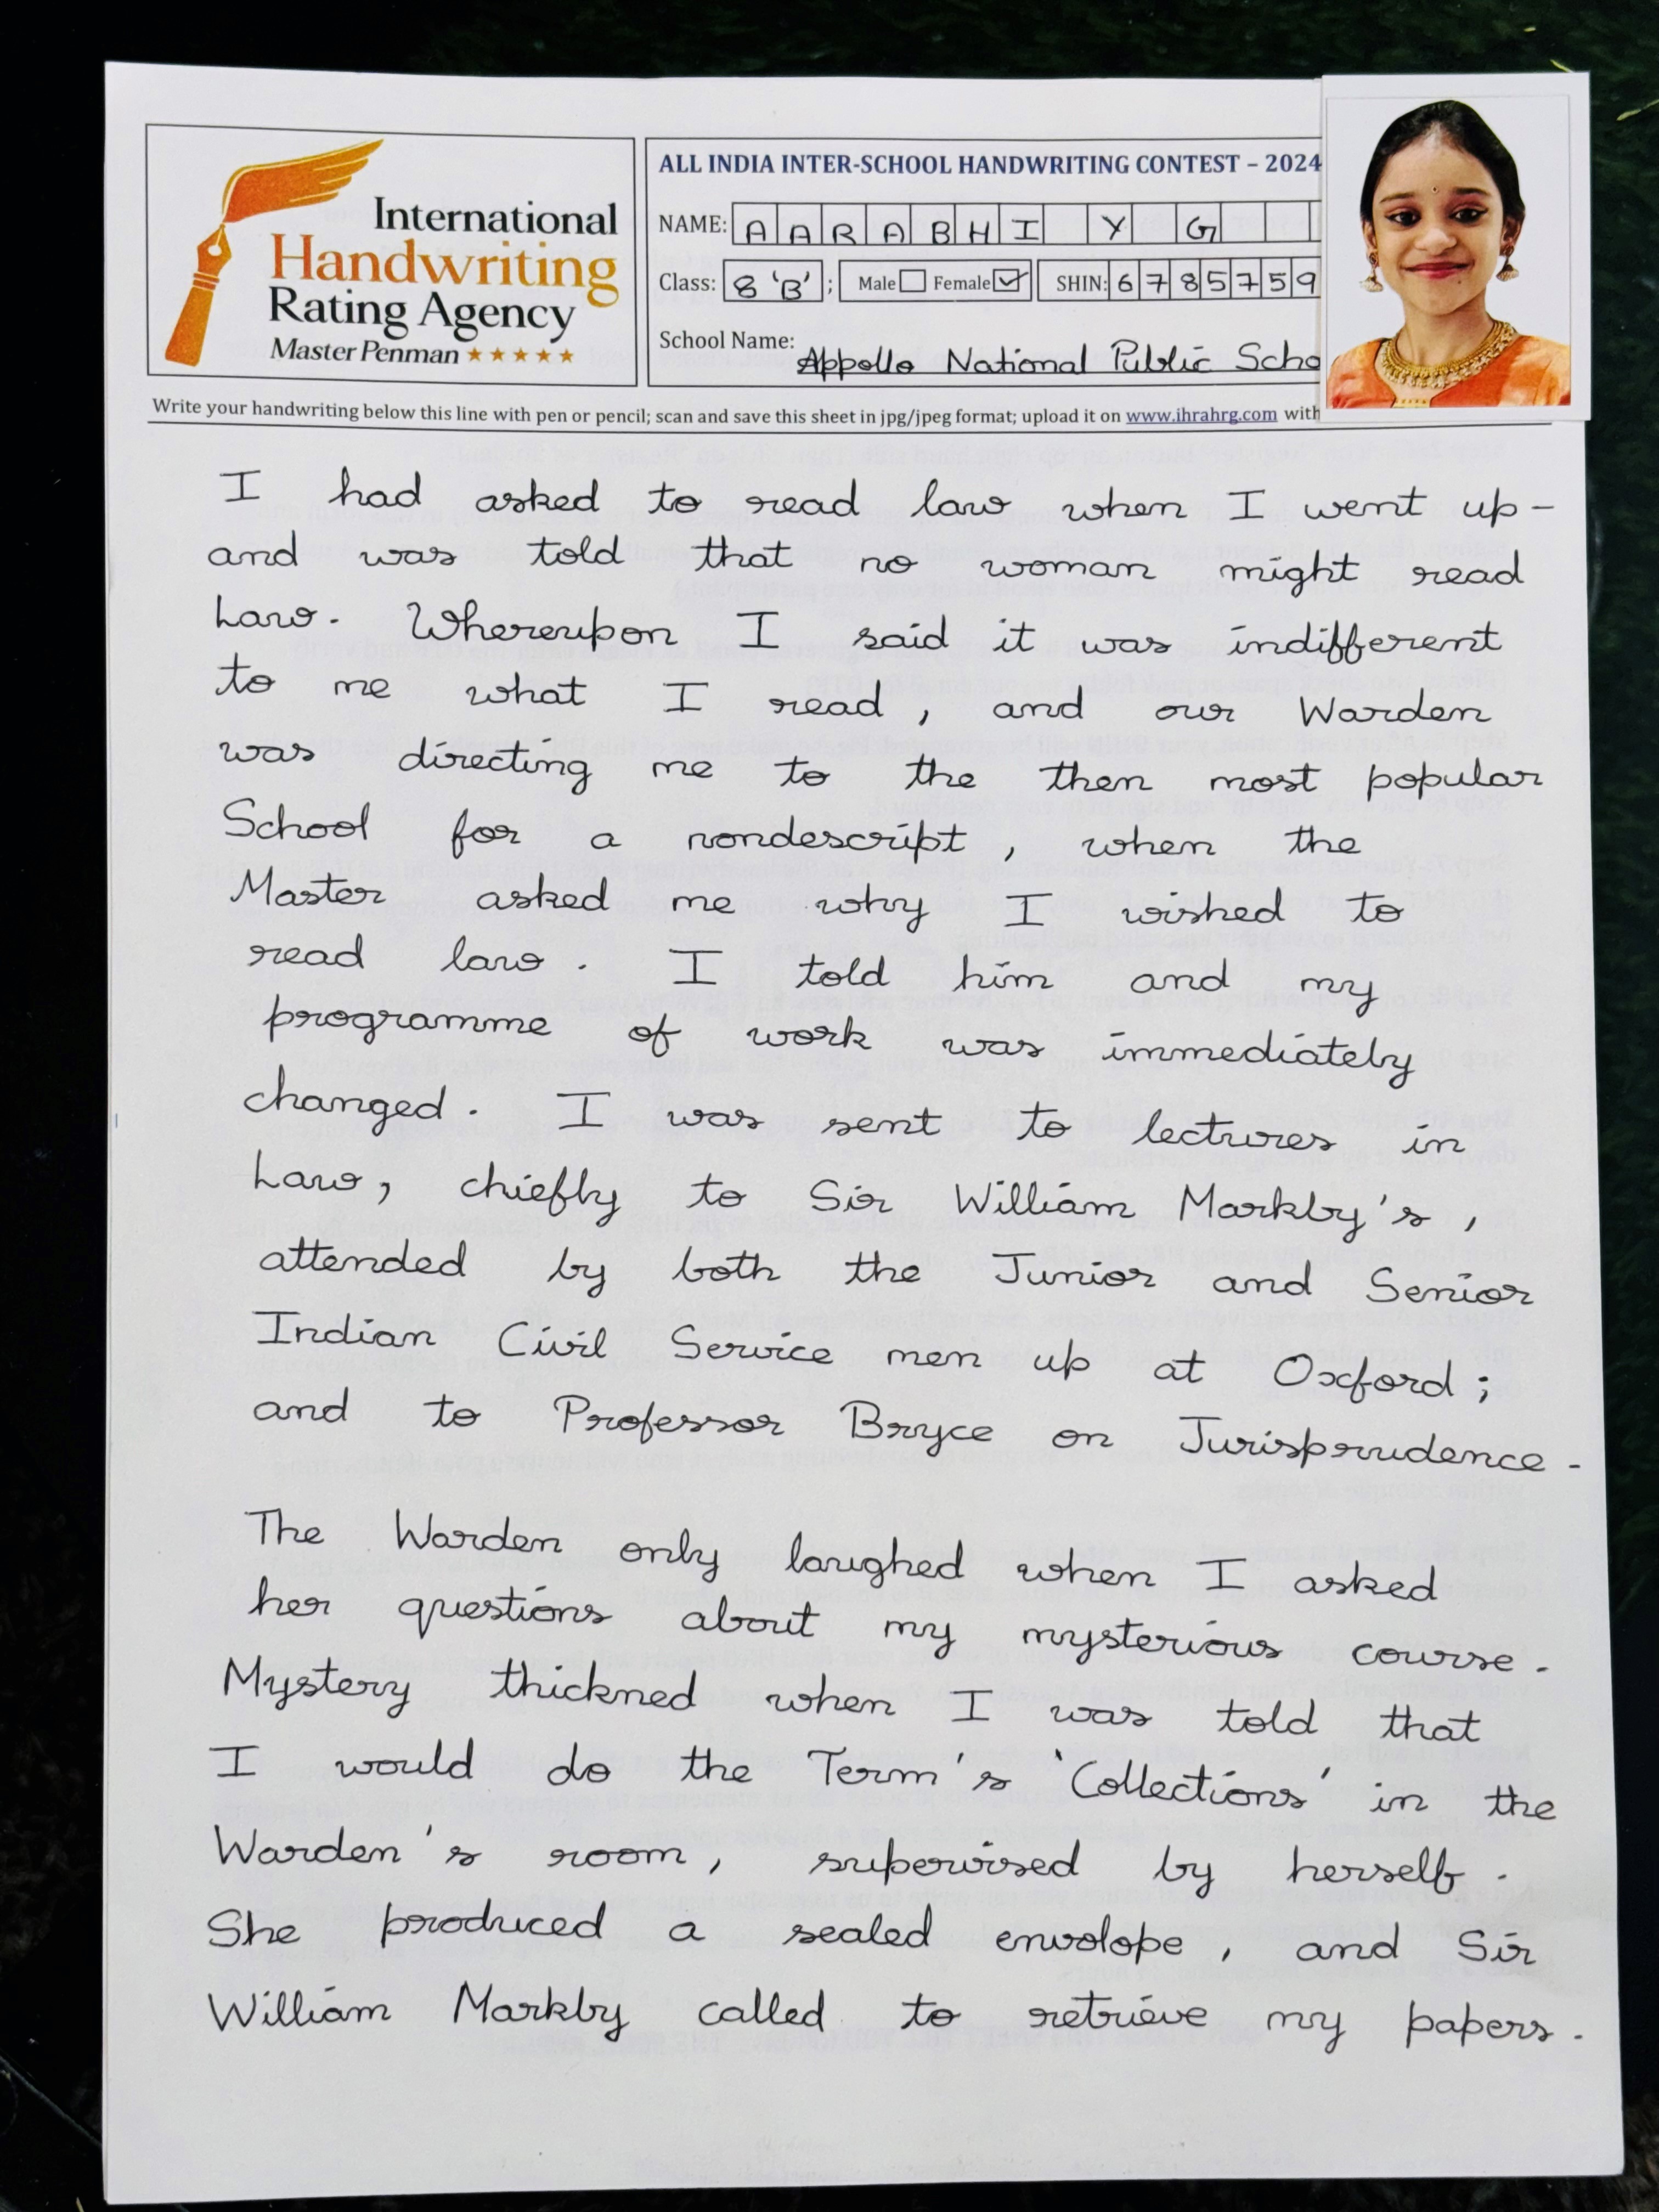 International
Handwriting
Rating Agency
Master Penman ★★★★★
ALL INDIA INTER-SCHOOL HANDWRITING CONTEST – 2024
NAME: AARABHI Y G
Class: 8 'B' ; Male Female ✓ SHIN: 6785759
School Name: Appollo National Public Scho
Write your handwriting below this line with pen or pencil; scan and save this sheet in jpg/jpeg format; upload it on www.ihrahrg.com with
I had asked to read law when I went up-
and was told that no woman might read
Law. Whereupon I said it was indifferent
to me what I read, and our Warden
was directing me to the then most popular
School for a nondescript, when the
Master asked me why I wished to
read law. I told him and my
programme of work was immediately
changed. I was sent to lectures in
Law, chiefly to Sir William Markby's,
attended by both the Junior and Senior
Indian Civil Service men up at Oxford;
and to Professor Bryce on Jurisprudence.
The Warden only laughed when I asked
her questions about my mysterious course.
Mystery thickned when I was told that
I would do the Term's 'Collections' in the
Warden's room, supervised by herself.
She produced a sealed envolope, and Sir
William Markby called to retrieve my papers.